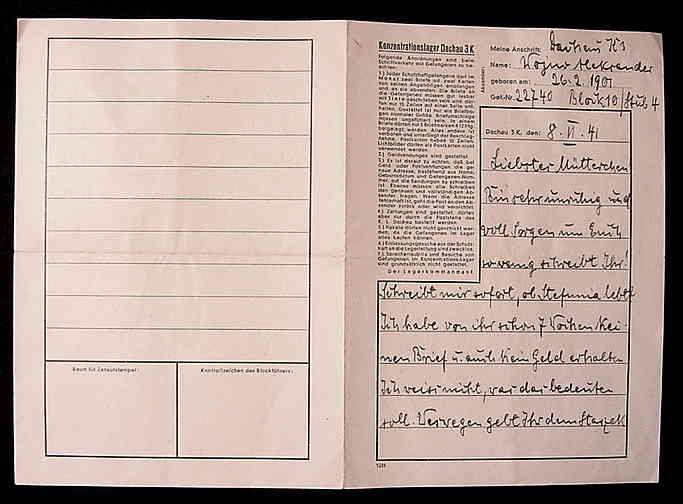 Raum für Zensurstempel:
Kontrollzeichen des Blockführers:
Konzentrationslager Dachau 3 K
Folgende Anordnungen sind beim
Schriftverkehr mit Gefangenen zu be-
achten:
1.) Jeder Schutzhaftgefangene darf im
Monat zwei Briefe od. zwei Karten
von seinen Angehörigen empfangen
und an sie absenden. Die Briefe an
die Gefangenen müssen gut lesbar
mit Tinte geschrieben sein und dür-
fen nur 15 Zeilen auf einer Seite ent-
halten. Gestattet ist nur ein Briefbo-
gen normaler Größe. Briefumschläge
müssen ungefüttert sein. In einem
Briefe dürfen nur 5 Briefmarken à 12 Pfg.
beigelegt werden. Alles andere ist
verboten und unterliegt der Beschlag-
nahme. Postkarten haben 10 Zeilen.
Lichtbilder dürfen als Postkarten nicht
verwendet werden.
2.) Geldsendungen sind gestattet.
3.) Es ist darauf zu achten, daß bei
Geld- oder Postsendungen die ge-
naue Adresse, bestehend aus Name,
Geburtsdatum und Gefangenen-Num-
mer, auf die Sendungen zu schreiben
ist.
4.) Zeitungen sind gestattet, dürfen
aber nur durch die Poststelle des
K. L. Dachau bestellt werden.
5.) Pakete dürfen nicht geschickt wer-
den, da die Gefangenen im Lager
alles kaufen können.
6.) Entlassungsgesuche aus der Schutz-
haft an die Lagerleitung sind zwecklos.
7.) Sprecherlaubnis und Besuche von
Gefangenen im Konzentrations-Lager
sind grundsätzlich nicht gestattet.
Der Lagerkommandant
Absender:
Meine Anschrift: Dachau K3
Name: Alexander
geboren am: 26.2.1901
Gef.-Nr. 22740 Block 10/Stub 4
Dachau 3 K, den: 8. VI. 41
Liebster Mütterchen
Bin sehr unruhig und
voll Sorgen um Euch
so wenig schreibt Ihr!
Schreibt mir sofort, ob Stefania lebt?
Ich habe von ihr schon 7 Wochen kei-
nen Brief u. auch kein Geld erhalten
Ich weiss nicht, was das bedeuten
soll. gebt Ihr dem